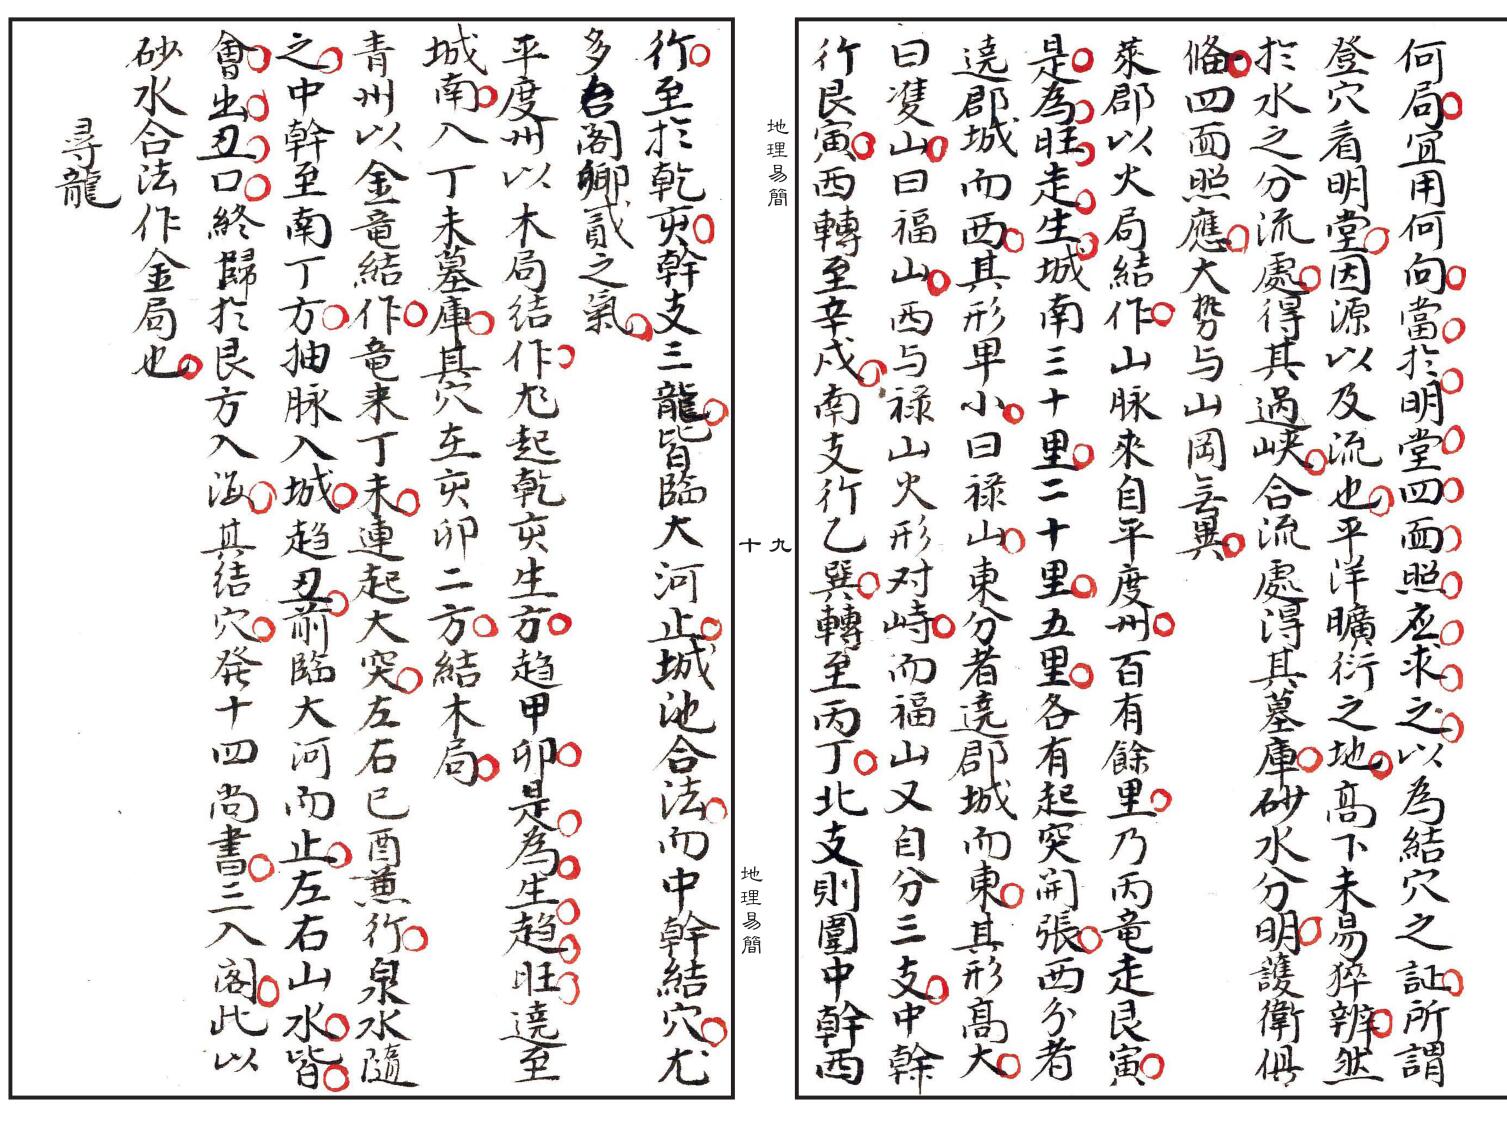 何局宜用何向當扵明堂四面照应求之以為結穴之証所謂
登穴看明堂因源以及流也平洋曠衍之地高下未易猝辨然
扵水之分流處得其過峽合流處得其墓庫砂水分明護衛俱
俻四面照應大势与山岡无異
萊郡以火局結作山脉來自平度州百有餘里乃丙竜走艮寅
是為旺走生城南三十里二十里五里各有起突開張西分者
遶郡城而西其形卑小曰禄山東分者遶郡城而東其形高大
曰䨇山曰福山西与禄山火形对峙而福山又自分三支中幹
行艮寅西轉至辛戌南支行乙巽轉至丙丁北支則圍中幹西
地理易簡
九
十
地理易簡
行至扵乾亥幹支三龍皆臨大河止城池合法而中幹結穴尤
多台阁卿貳之氣
平度州以木局結作尨起乾亥生方趋甲卯是為生趋旺遶至
城南入丁未墓庫其穴在亥卯二方結木局
青州以金竜結作竜来丁未連起大突左右巳酉兼行泉水隨
之中幹至南丁方抽脉入城趋丑前臨大河而止左右山水皆
會出丑口終歸扵艮方入海其結穴発十四尚書三入阁此以
砂水合法作金局也
尋龍